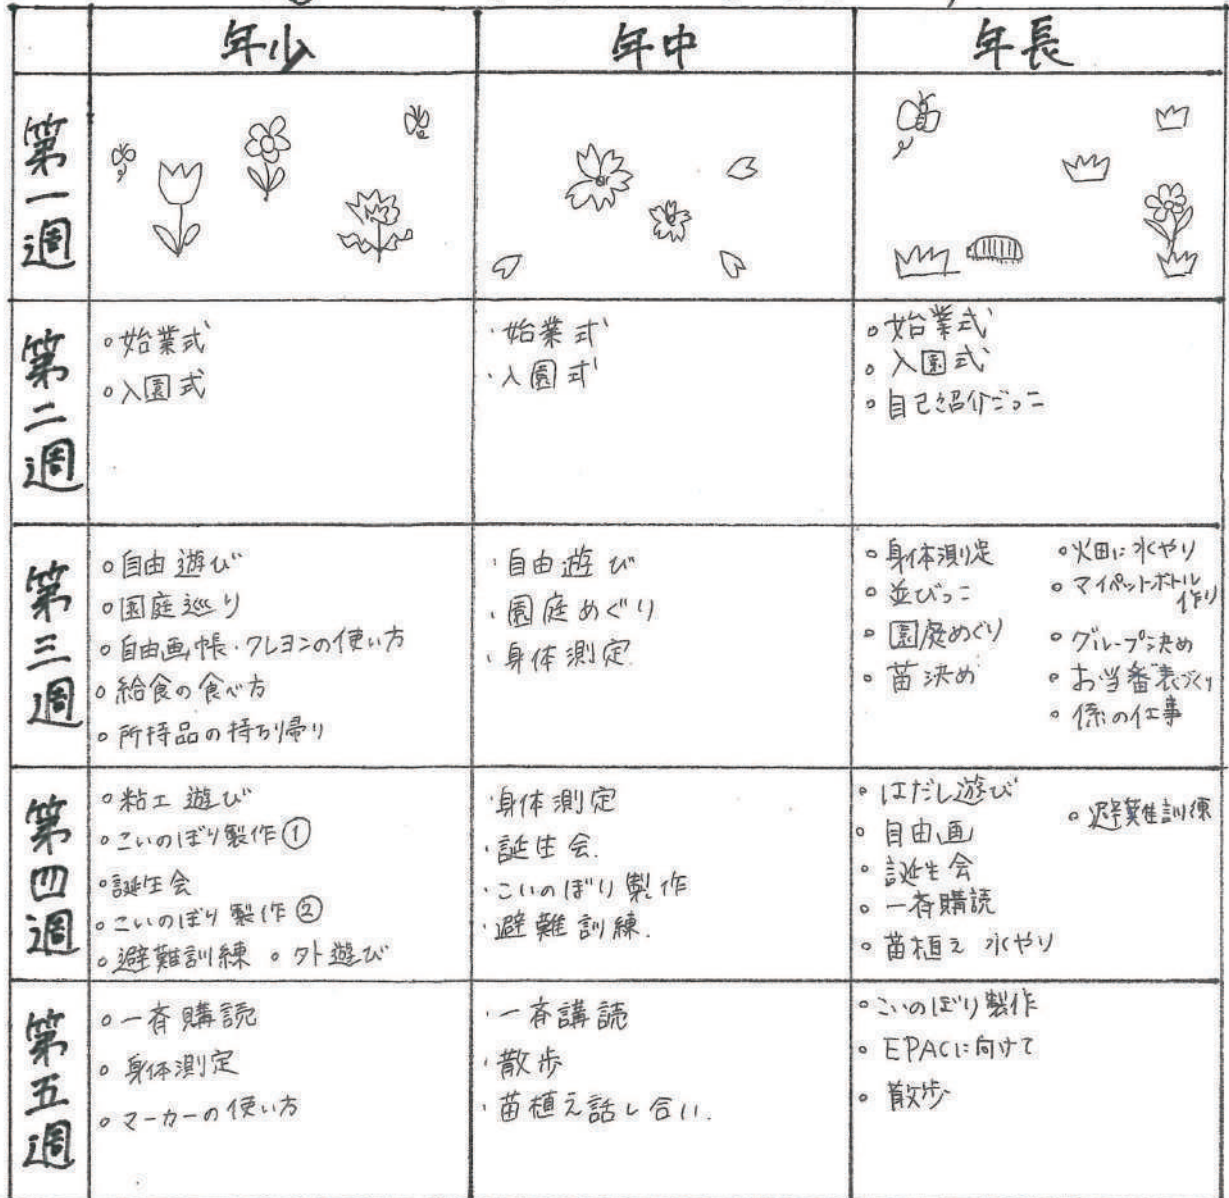 年少
年中
年長
第一週
第二週
・始業式
・入園式
・始業式
・入園式
・始業式
・入園式
・自己紹介ごっこ
第三週
・自由遊び
・園庭巡り
・自由画帳・クレヨンの使い方
・給食の食べ方
・所持品の持ち帰り
・自由遊び
・園庭めぐり
・身体測定
・身体測定
・並びっこ
・園庭めぐり
・苗決め
・畑に水やり
・マイペットボトル
作り
・グループ決め
・お当番表づくり
・係の仕事
第四週
・粘土遊び
・こいのぼり製作①
・誕生会
・こいのぼり製作②
・避難訓練 ・外遊び
・身体測定
・誕生会.
・こいのぼり製作
・避難訓練.
・はだし遊び
・自由画
・誕生会
・一斉購読
・苗植え 水やり
・避難訓練
第五週
・一斉購読
・身体測定
・マーカーの使い方
・一斉講読
・散歩
・苗植え話し合い.
・こいのぼり製作
・EPACに向けて
・散歩